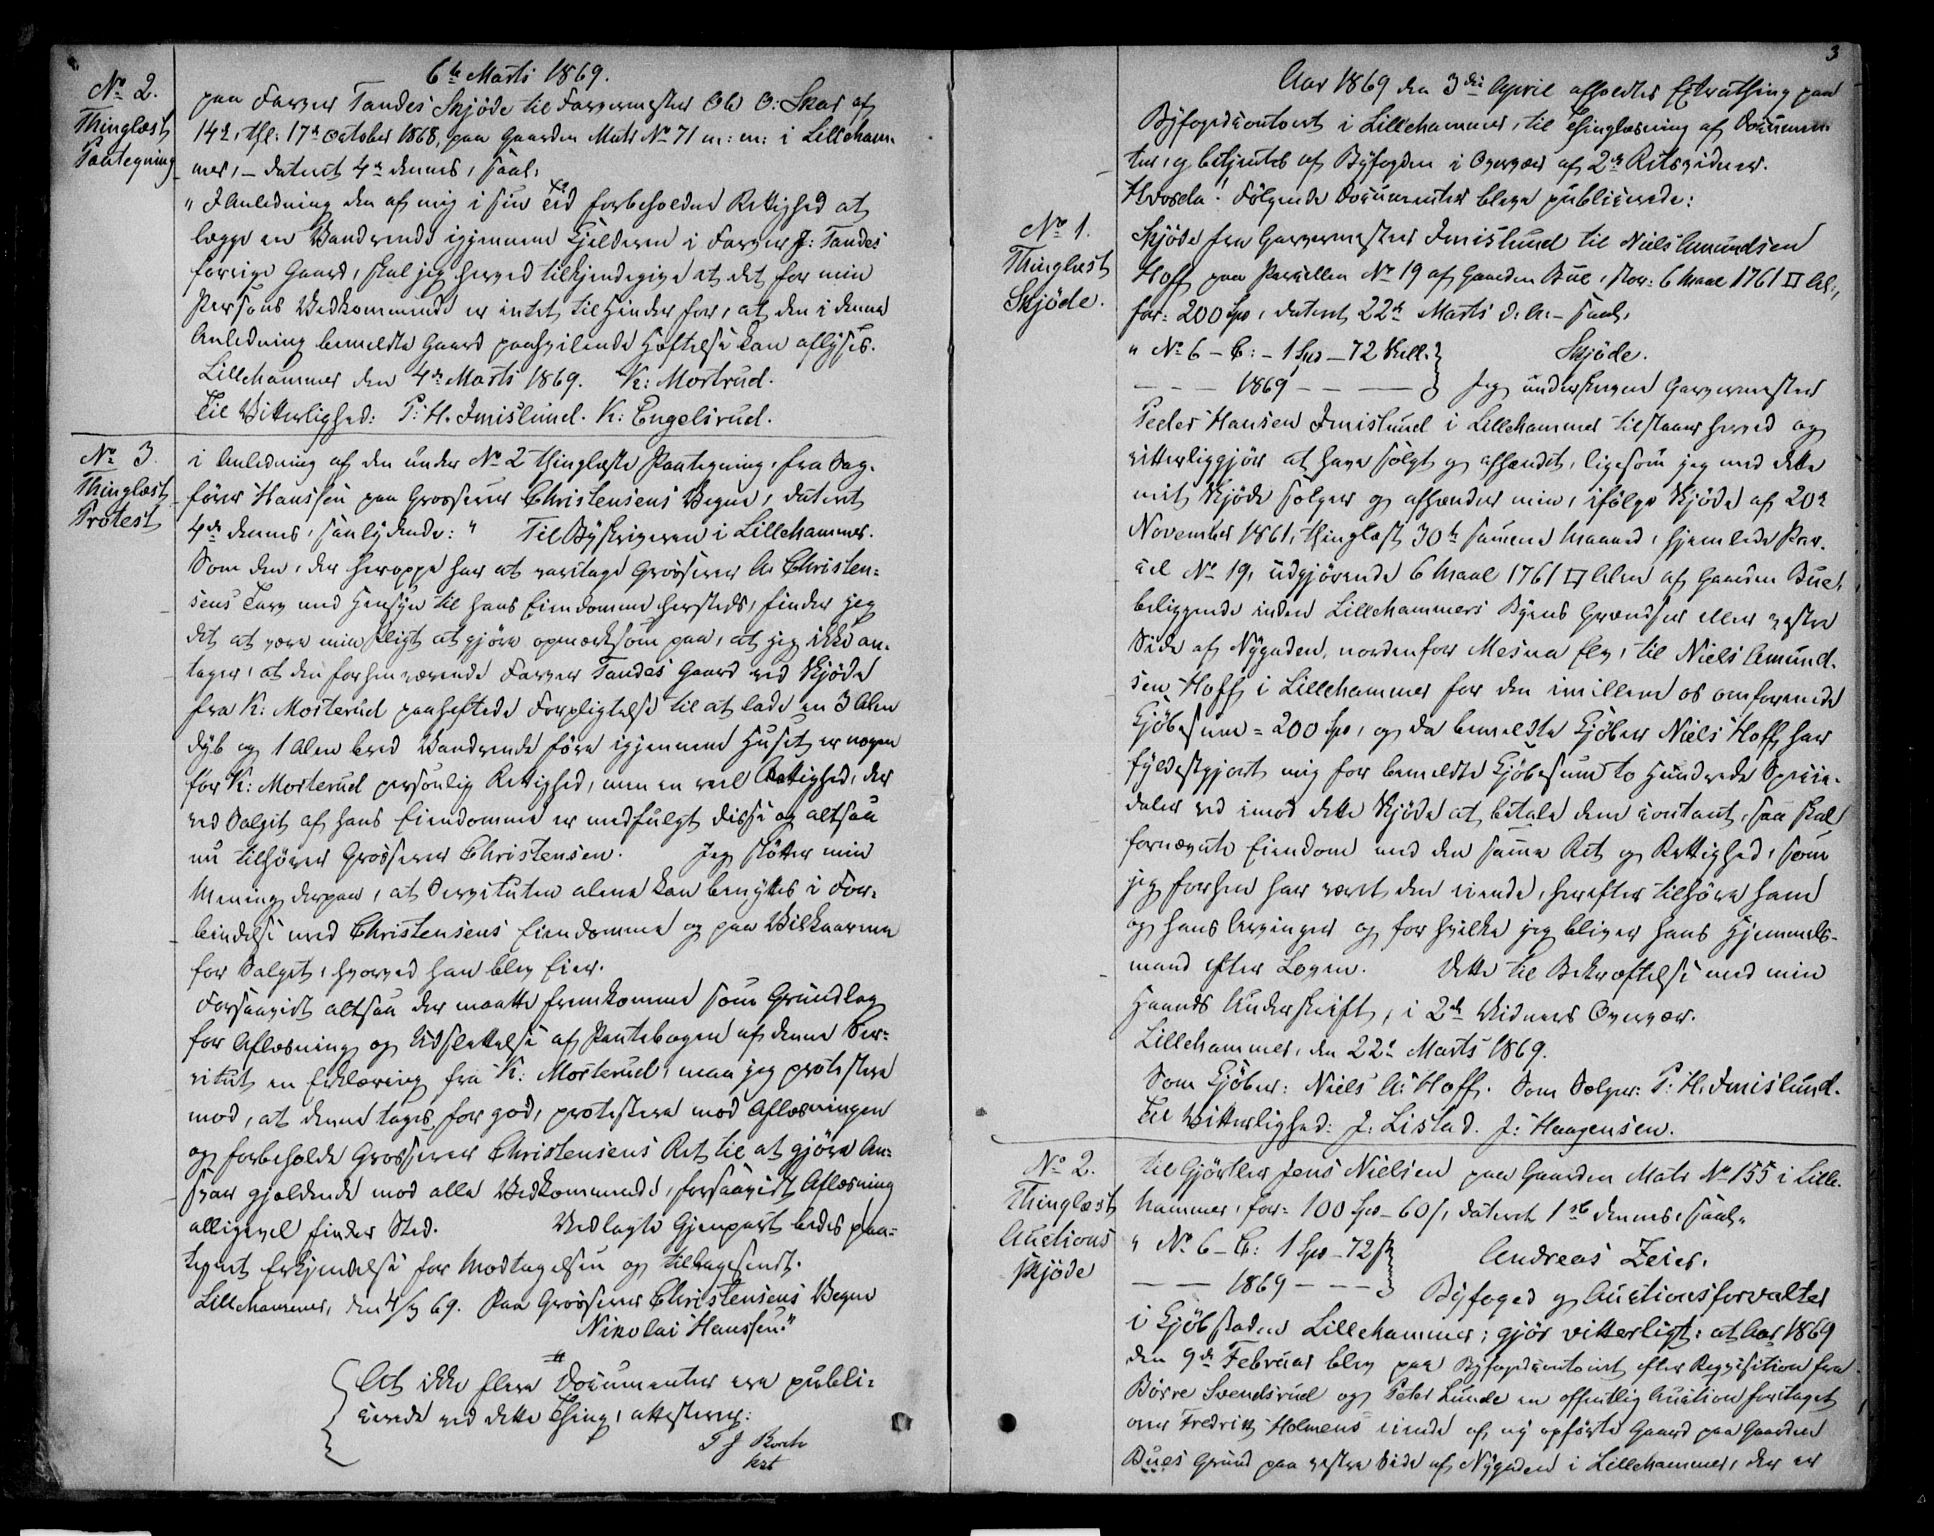 6te Marts 1869.
No 2.
Thinglæst
Paategning
paa Farver Tandes Skjöde til Farvermester Ole O: Skar af
14de, thl: 17de October 1868, paa Gaarden Matr No 71 m: m: i Lilleham-
mer, – dateret 4de dennes, saal,
" I Anledning den af mig i sin Tid forbeholdne Rettighed at
lægge en Vandrende igjennem Kjelderen i Farver J: Tandes
forrige Gaard, skal jeg herved tilkjendegive at det for min
Persons Vedkommende er intet til Hinder for, at den i denne
Anledning bemeldte Gaard paahvilende Hæftelse kan aflyses.
Lillehammer den 4de Marts 1869. K: Mostrud.
Til Vitterlighed: P: H. Imislund. K: Engelsrud.
No 3.
Thinglæst
Protest
i Anledning af den under No 2 thinglæste Paategning, fra Sag-
förer Hanssen paa Grosserer Christensens Vegne, dateret
4de dennes, saalydende: " Til Byskriveren i Lillehammer.
Som den, der heroppe har at varetage Grosserer A: Christen-
sens Tarv med Hensyn til hans Eiendomme hersteds, finder jeg
det at være min Pligt at gjöre opmærksom paa, at jeg ikke an-
tager, at den forhenværende Farver Tandes Gaard ved Skjöde
fra K: Mosterud paaheftede Forpligtelse til at lade en 3 Alen
dyb og 1 Alen bred Vandrende före igjennem Huset, er nogen
for K: Mosterud personlig Rettighed, men en reel Rettighed, der
ved Salget af hans Eiendomme er medfulgt disse og altsaa
nu tilhörer Grosserer Christensen. Jeg stötter min
Mening derpaa, at Servituten alene kan benyttes i For-
bindelse med Christensens Eiendomme og paa Vilkaarene
for Salget, hvorved han blev Eier.
Forsaavidt altsaa der maatte fremkomme som Grundlag
for Aflæsning og Udslettelse af Pantebogen af denne Ser-
vitut en Erklæring fra K: Mosterud, maa jeg protestere
mod, at denne tages for god, protestere mod Aflæsningen
og forbeholde Grosserer Christensens Ret til at gjöre An-
svar gjældende mod alle Vedkommende, forsaavidt Aflæsning
alligevel finder Sted. Vedlagte Gjenpart bedes paa-
tegnet Erkjendelse for Modtagelsen og tilbagesendt.
Lillehammer, den 4/3 69. Paa Grosserer Christensens Vegne
Nikolai Hanssen."
At ikke flere Documenter ere publi-
cerede ved dette Thing, attesterer:
3
Aar 1869 den 3die April afholdtes Extrathing paa
Byfogedcontoret i Lillehammer, til Thinglæsning af Documen-
ter, og betjentes af Byfogden i Overvær af 2de Retsvidner.
Hvorda! Fölgende Documenter bleve publicerede:
No 1.
Thinglæst
Skjöde.
Skjöde fra Garvermester Imislund til Niels Amundsen
Hoff paa Parcellen No 19 af Gaarden Bue, stor: 6 Maal 1761 □ Al:,
for: 200 Spd, dateret 22de Marts d: A: – saal,
" No 6 – C: – 1 Spd – 72 Skill. } Skjöde.
– – – 1869 – – – } Jeg underskrevne Garvermester
Peder Hansen Imislund i Lillehammer tilstaar herved og
vitterliggjör at have solgt og afhændet, ligesom jeg med dette
mit Skjöde sælger og afhænder min, ifölge Skjöde af 20de
November 1861, thinglæst 30te samme Maaned, hjemlede Par-
cel No 19, udgjörende 6 Maal 1761 □ Alen af Gaarden Bue,
beliggende inden Lillehammers Byens Grændser eller vestre
Side af Nygaden, nordenfor Mesna Elv, til Niels Amund-
sen Hoff i Lillehammer for den imellem os omforenede
Kjöbesum = 200 Spd, og da bemeldte Kjöber Niels Hoff har
fyldestgjort mig for bemeldte Kjöbesum to Hundrede Specie-
daler ved imod dette Skjöde at betale dem contant, saa skal
fornævnte Eiendom med den samme Ret og Rettighed, som
jeg forhen har været den eiende, herefter tilhöre ham
og hans Arvinger og for hvilke jeg bliver hans Hjemmels-
mand efter Loven. Dette til Bekræftelse med min
Haands Underskrift, i 2de Vidners Overvær.
Lillehammer, den 22de Marts 1869.
Som Kjöber: Niels A: Hoff. Som Sælger: P: H. Imislund.
Til Vitterlighed: J: Listad. J: Haagensen.
No 2.
Thinglæst
Auctions
skjöde
til Gjörtler Jens Nielsen paa Gaarden Matr No 155 i Lille-
hammer, for: 100 Spd – 60 s, dateret 1ste dennes, saal,
" No 6 – C: 1 Spd – 72 s } Andreas Zeier,
– – 1869 – – – } Byfoged og Auctionsforvalter
i Kjöbstaden Lillehammer; gjör vitterligt: at Aar 1869
den 9de Februar blev paa Byfogedcontoret efter Reqvisition fra
Börre Svendsrud og Peter Lunde en offentlig Auction foretaget
over Fredrik Holmens eiende af ny opförte Gaard paa Gaarden
Bues Grund paa vestre Side af Nygaden i Lillehammer, der er